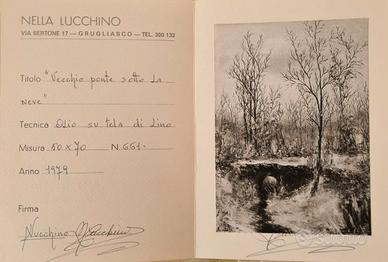 NELLA LUCCHINO
VIA BERTONE 17 — GRUGLIASCO — TEL. 300 132
Titolo "Vecchio ponte sotto la
neve"
Tecnica Olio su tela di lino
Misura 50 x 70 N. 661-
Anno 1979
Firma
NLucchino